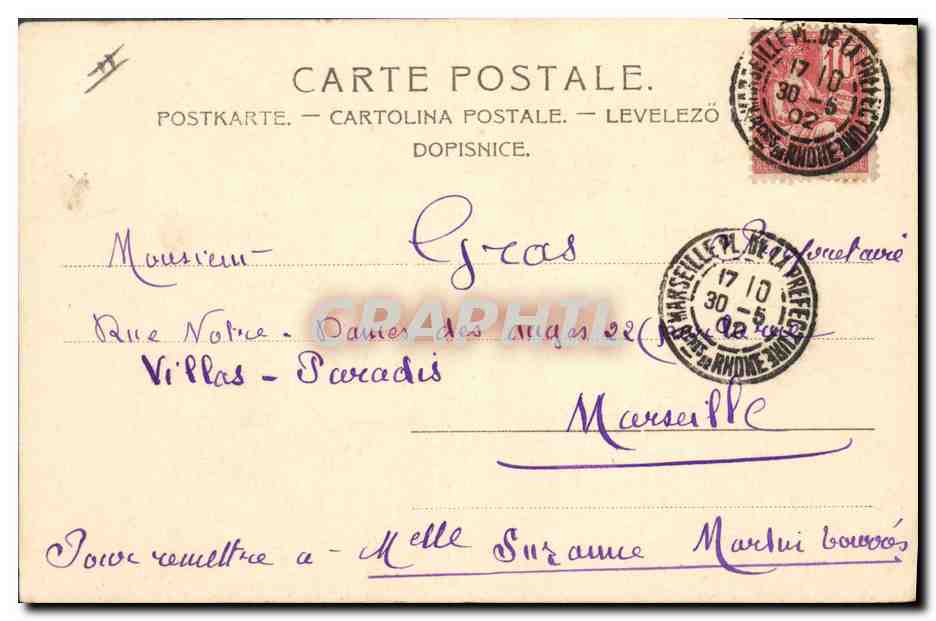 CARTE POSTALE.
POSTKARTE. — CARTOLINA POSTALE. — LEVELEZŐ
DOPISNICE.
10
MARSEILLE PL. DE LA PREFECTURE
17 10
30 - 5
02
BCHES DU RHONE
Monsieur Gras
MARSEILLE PL. DE LA PREFECTURE
17 10
30 - 5
02
BCHES DU RHONE
DELCAMPHIL
Rue Notre - Dames des anges 22
Villas - Paradis
Marseille
Pour remettre a - Melle Suzanne Martini